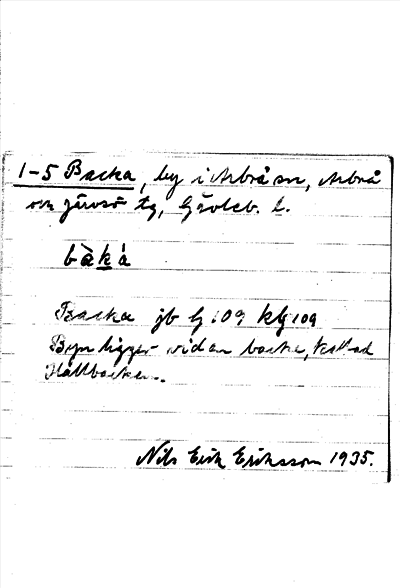 1-5 Backa, by i Arbrå sn, Arbrå
och Järvsö tg, Gävleb. l.
bàkà
Backa jb 1/9 1109 kb 1/9 109
Byn ligger vid en backe, kallad
Hällbacken.
Nils Erik Eriksson 1935.